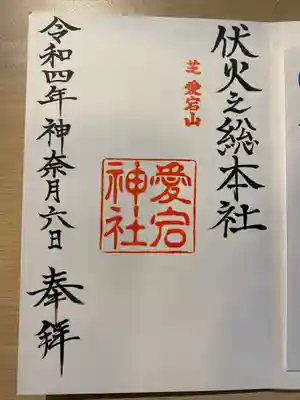 伏火之総本社
芝 愛宕山
愛宕
神社
奉拝
令和四年 神奈月六日